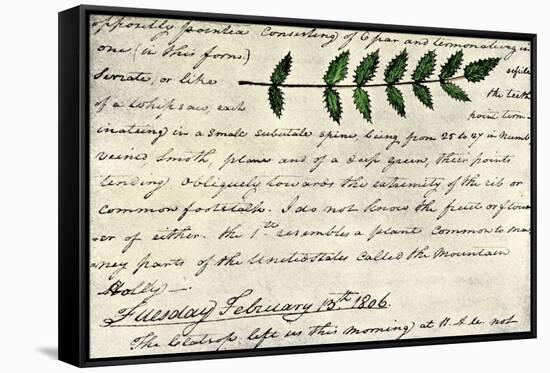 oppositly pointed consisting of 6 par and termonateing in
one (in this form.) sessile
Serrate, or like the teeth
of a whipsaw, each point term-
inateing in a small subulate spine, being from 25 to 27 in numb
veined smoth, plane and of a deep green, their points
tending obliquely towards the extremity of the rib or
common footstalk. I do not know the fruit or flow
er of either. the 1st resembles a plant common to ma
ney parts of the Unitedstates called the Mountain
Holly —
Tuesday February 13th 1806.
The Clatsop left us this morning at 11. A.M. not